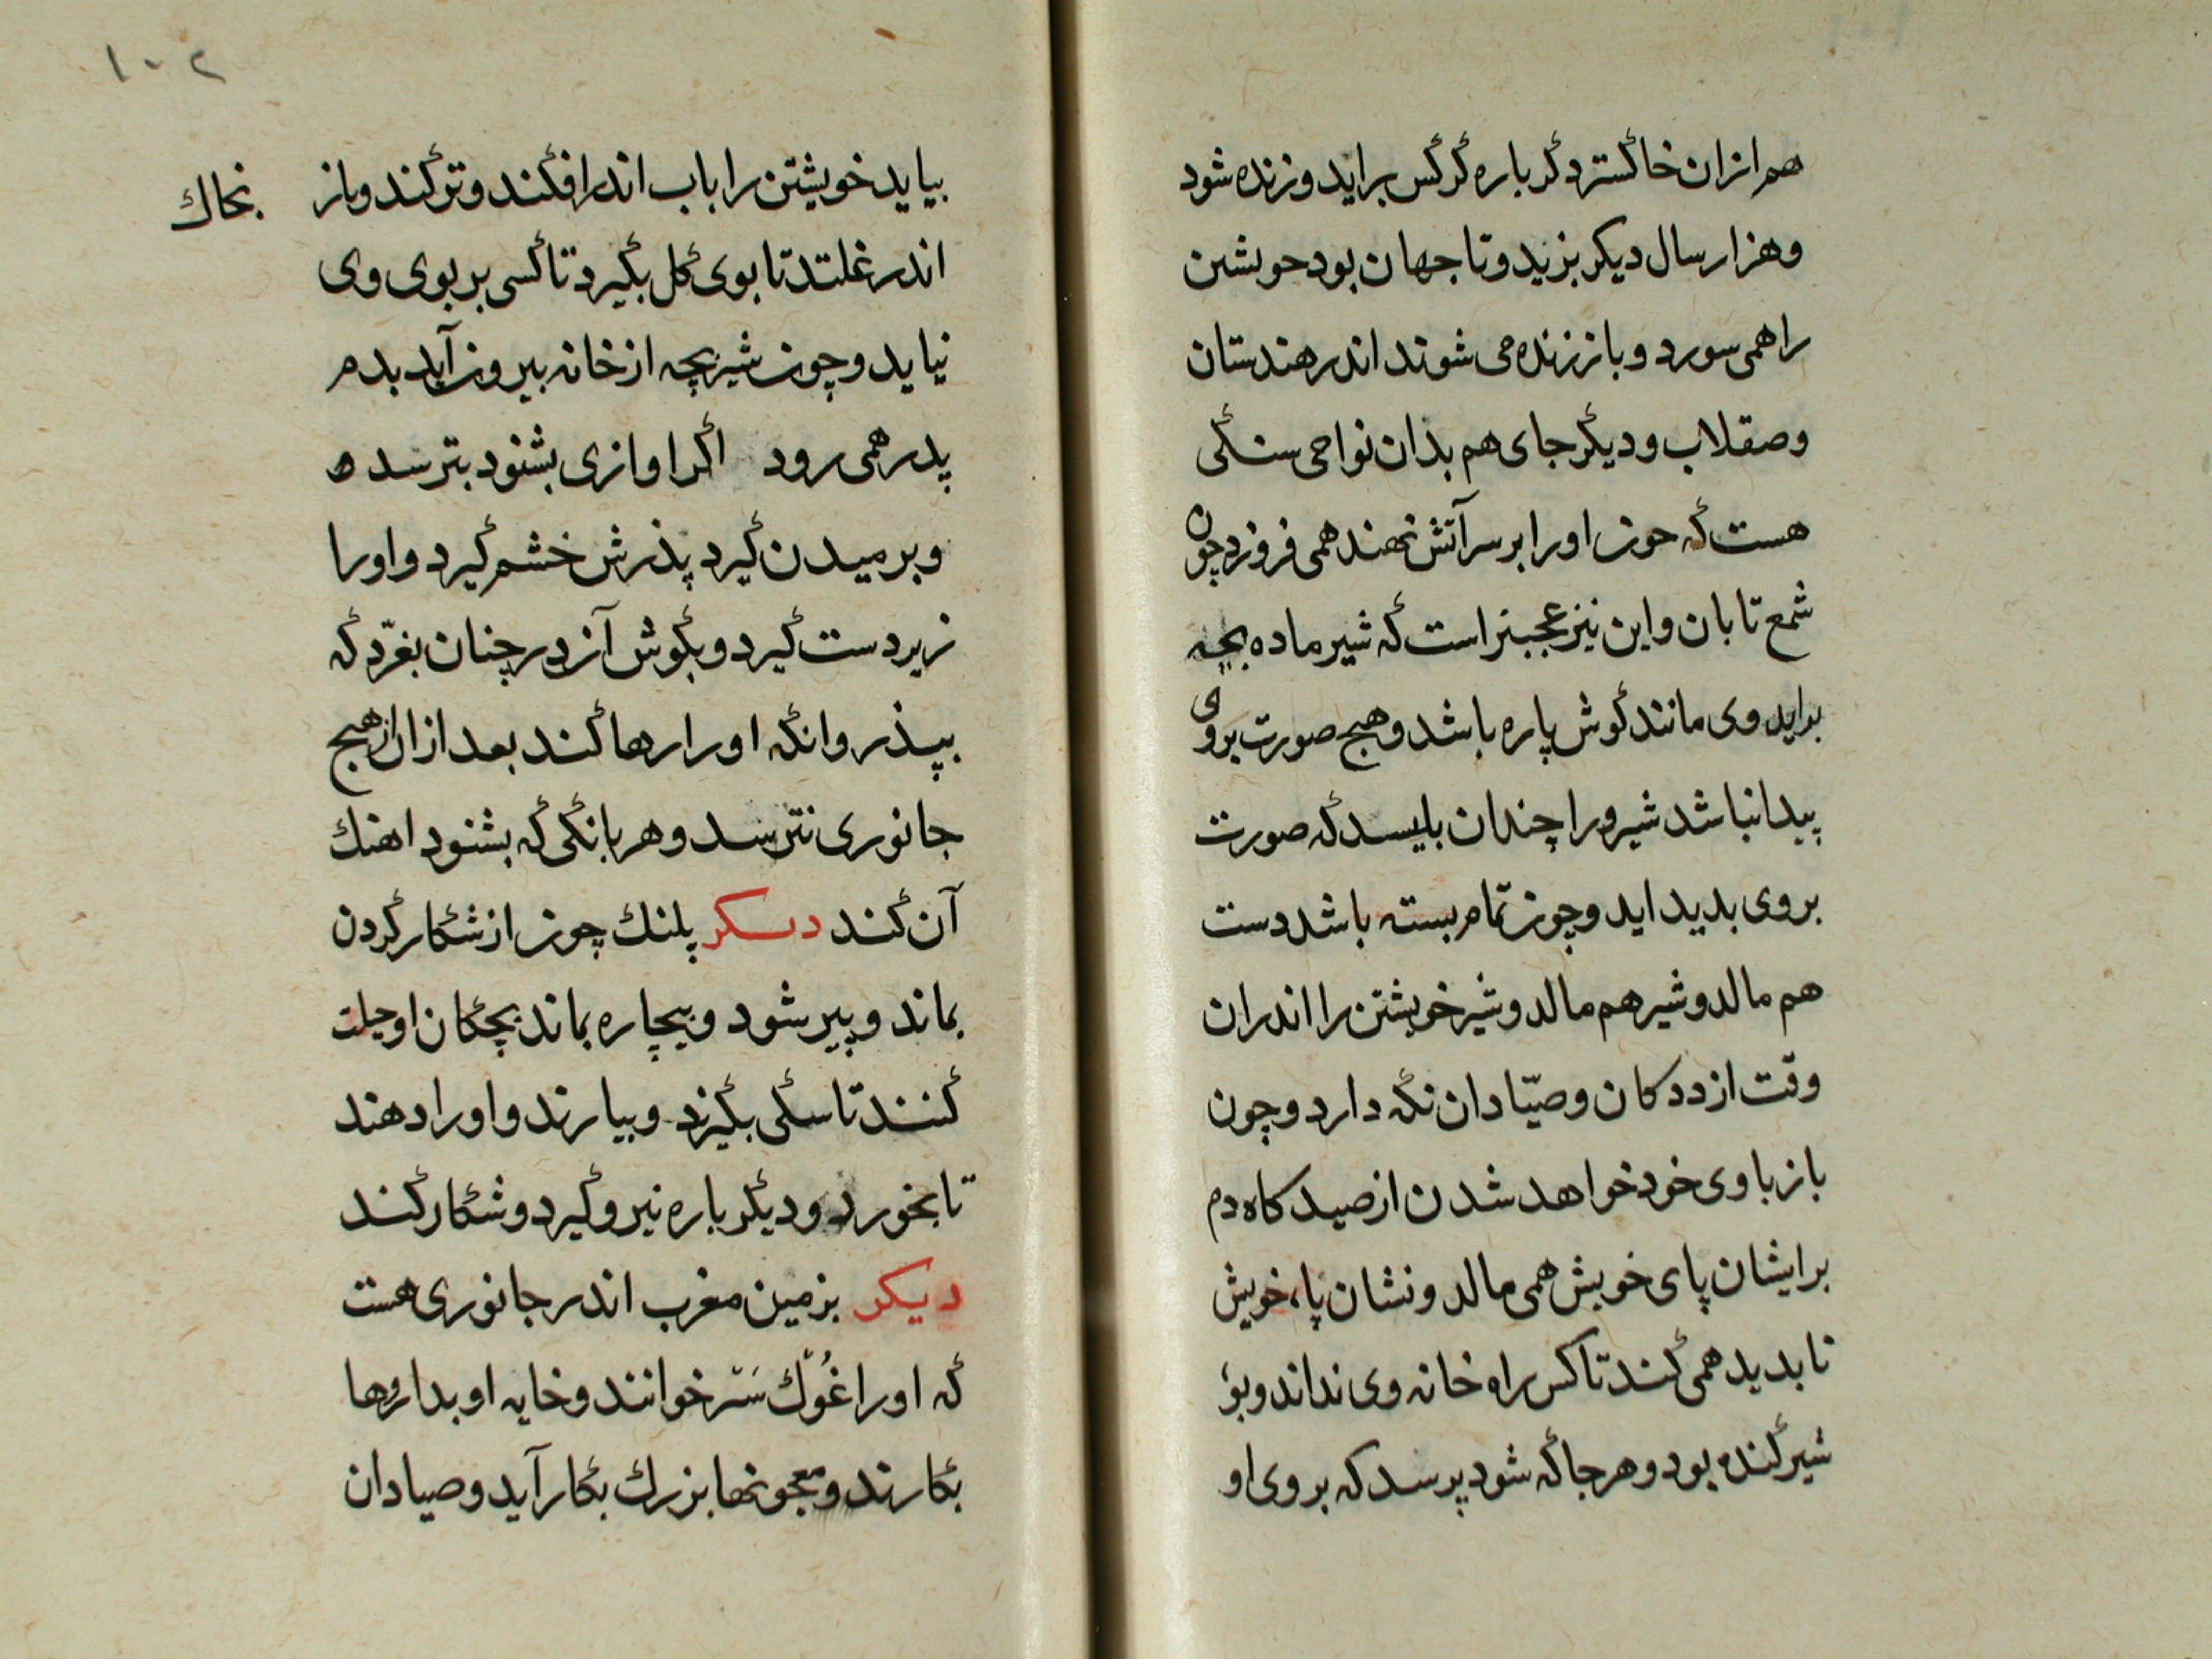 هم ازان خاکستر دکر باره کرکس براید و زنده شود
و هزار سال دیکر بزید و تا جهان بود حویشین
را همی سورد و باز زنده می شوند اندر هندستان
و صقلاب و دیکر جای هم بذان نواحی سنکی
هست که حون او را بر سر آتش نهند همی فروزد چون
شمع تابان و این نیز عجبتر است که شیر ماده بچه
براید وی مانند کوش پاره باشد و هیچ صورت بروی
پیدا نباشد شیر ورا چندان بلیسد که صورت
بروی بدید اید و چون تمام بسته باشد دست
هم مالد و شیر هم مالد و شیر خویشتن را اندران
وقت از ددکان و صیّادان نکه دارد و چون
باز باوی خود خواهد شدن از صید کاه دم
برایشان پای خویش همی مالد و نشان پاء خویش
نابدید همی کند تا کس راه خانه وی نداند و بوء
شیر کنده بود و هر جا که شود پرسد که بروی او
۱۰۲
بیاید خویشتن را باب اندر افکند و تر کند و باز بخاك
اندر غلتد تا بوی کل بکیرد تا کسی بر بوی وی
نیاید و چون شیر بچه از خانه بیرون آید بدم
پدر همی رود اکر اوازی بشنود بترسد ه
و برمیدن کیرد پذرش خشم کیرد و او را
زیر دست کیرد و بکوش آندر چنان بغرّد که
بپذر وانکه او را رها کند بعد ازان از هیچ
جانوری نترسد و هر بانکی که بشنود اهنك
آن کند دیکر پلنك چون از شکار کردن
بماند و پیر شود و بیچاره بماند بچکان او حیلت
کنند تا سکی بکیرند و بیارند و او را دهند
تا بخورد و دیکر باره نیرو کیرد و شکار کند
دیکر بزمین مغرب اندر جانوری هست
که او را غُوك سَتر خوانند و خایه او بداروها
بکارند و معجونها بزرك بکار آید و صیادان